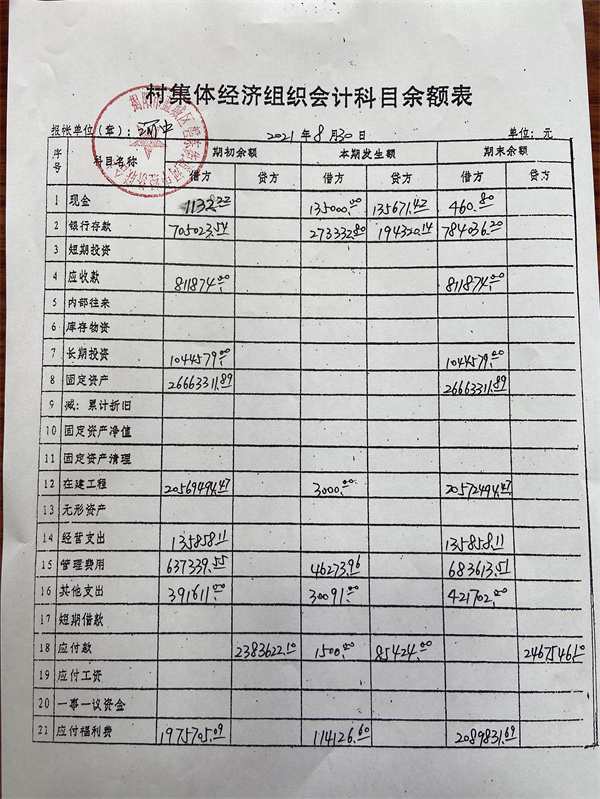 村集体经济组织会计科目余额表
报帐单位(章): 河中 2021年8月30日 单位: 元
序号 科目名称 期初余额 本期发生额 期末余额
借方 贷方 借方 贷方 借方 贷方
1 现金 1132.22 135000.00 135671.42 460.80
2 银行存款 705023.54 273332.80 194320.14 784036.20
3 短期投资
4 应收款 811874.00 811874.00
5 内部往来
6 库存物资
7 长期投资 1044579.00 1044579.00
8 固定资产 26663311.89 26663311.89
9 减: 累计折旧
10 固定资产净值
11 固定资产清理
12 在建工程 20569494.47 3000.00 20572494.47
13 无形资产
14 经营支出 135858.11 135858.11
15 管理费用 637339.55 46273.96 683613.51
16 其他支出 391611.00 30091.00 421702.00
17 短期借款
18 应付款 2383622.10 1500.00 85424.00 2467546.10
19 应付工资
20 一事一议资金
21 应付福利费 1975705.09 114126.60 2089831.69